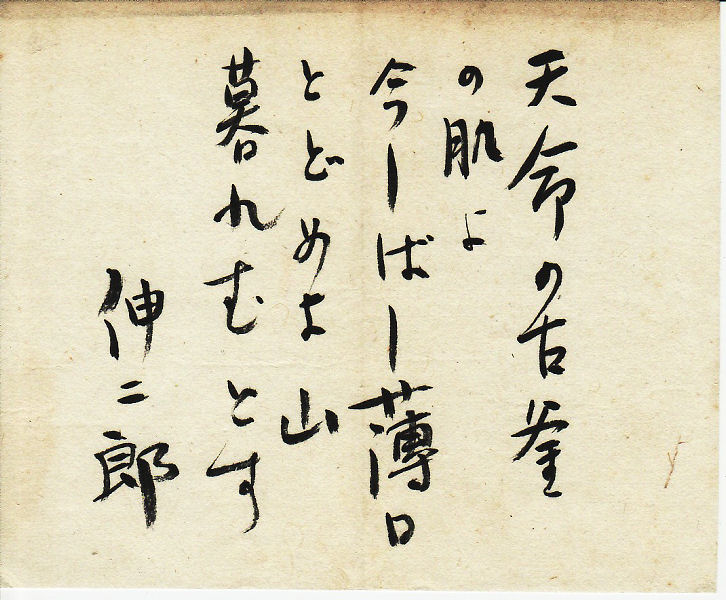 天命の古釜
の肌よ
今しばし薄日
とどめよ山
暮れむとす
伸二郎